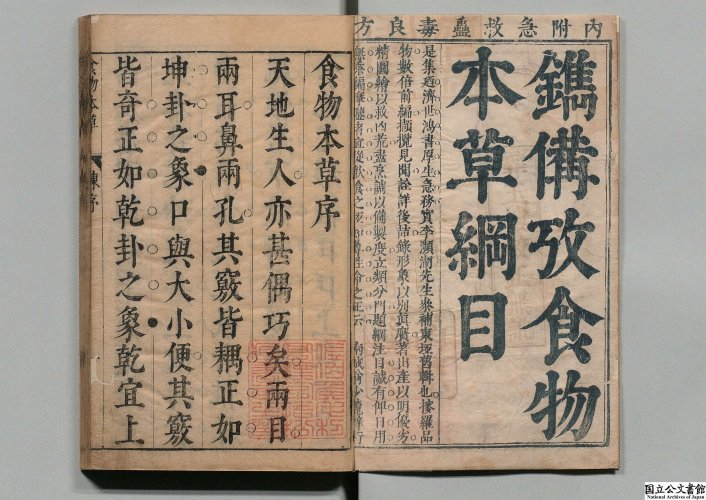 內附急救蠱毒良方
鐫備攷食物
本草綱目
是集廼濟世鴻書厚生急務實李瀕湖先生叅補東垣舊輯也搜羅品
物數倍前編擷攬見聞詮詳後錄形象以別眞贋著出產以明優劣
精圖繪以救荒盡烹以備製度立類分門題綱注目誠有俾日用
食物本草序
天地生人亦甚偶巧矣兩目
兩耳鼻兩孔其竅皆耦正如
坤卦之象口與大小便其竅
皆奇正如乾卦之象乾宜上
食物本草 陳序
国立公文書館
National Archives of Japan